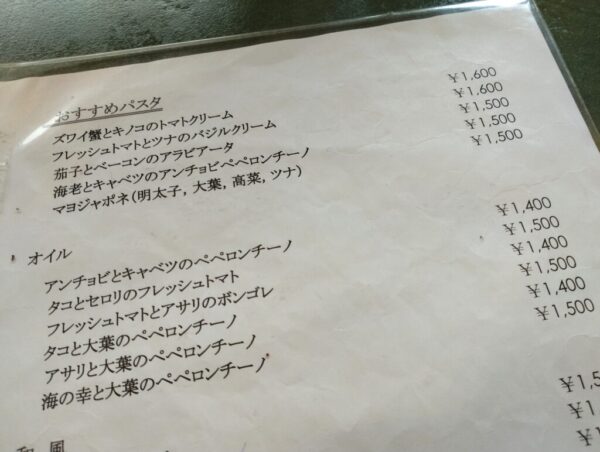 おすすめパスタ
ズワイ蟹とキノコのトマトクリーム ￥1,600
フレッシュトマトとツナのバジルクリーム ￥1,600
茄子とベーコンのアラビアータ ￥1,500
海老とキャベツのアンチョビペペロンチーノ ￥1,500
マヨジャポネ(明太子, 大葉, 高菜, ツナ) ￥1,500
オイル
アンチョビとキャベツのペペロンチーノ ￥1,400
タコとセロリのフレッシュトマト ￥1,500
フレッシュトマトとアサリのボンゴレ ￥1,400
タコと大葉のペペロンチーノ ￥1,500
アサリと大葉のペペロンチーノ ￥1,400
海の幸と大葉のペペロンチーノ ￥1,500
和 風